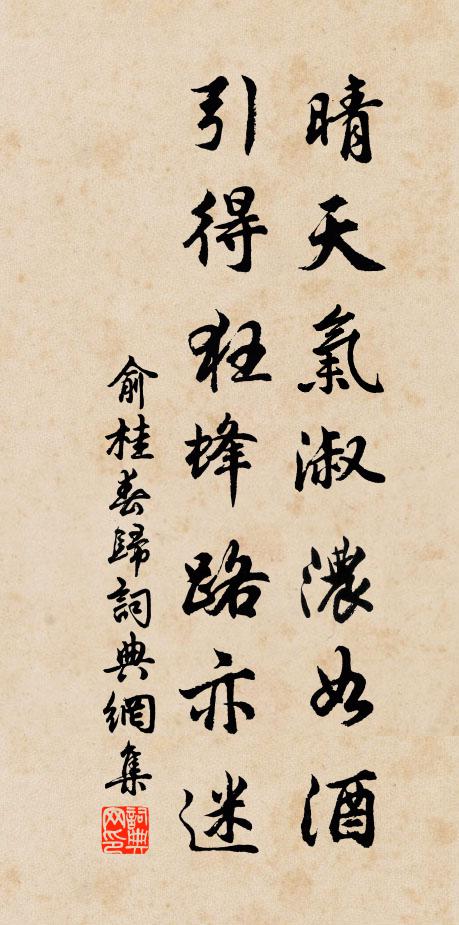 晴天氣淑濃如酒
引得狂蜂路亦迷
俞桂春歸詞典網集
詞典网印